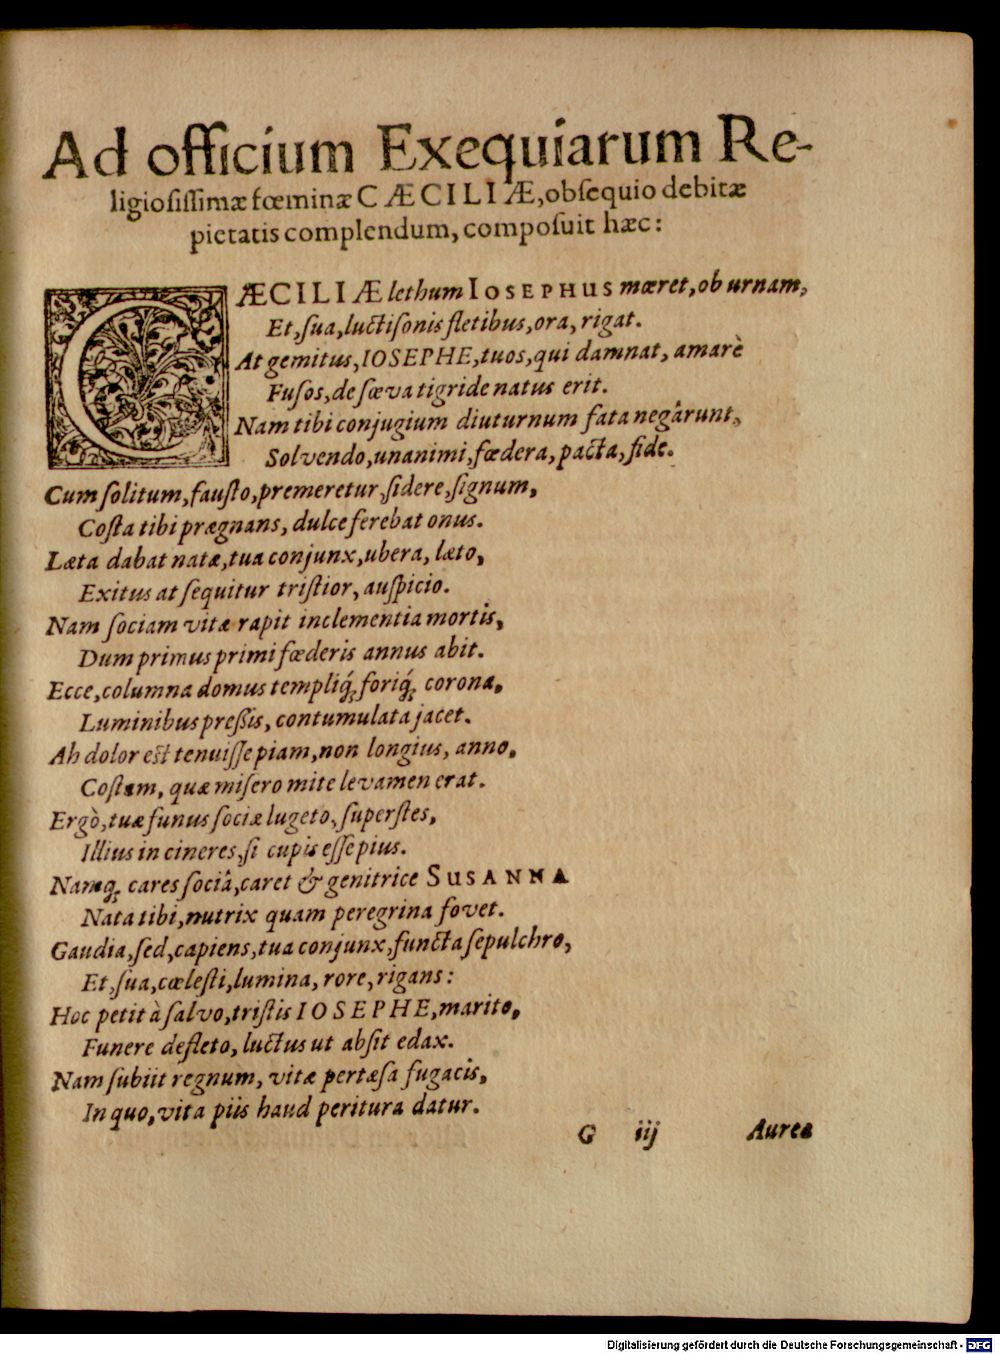 Ad officium Exequiarum Re-
ligiosissimæ fœminæ CÆCILIÆ, obsequio debitæ
pietatis complendum, composuit hæc:
CÆCILIÆ lethum IOSEPHUS mœret, ob urnam,
Et, sua, luctisonis fletibus, ora, rigat.
At gemitus, IOSEPHE, tuos, qui damnat, amarè
Fusos, de sæva tigride natus erit.
Nam tibi conjugium diuturnum fata negârunt,
Solvendo, unanimi, fœdera, pacta, fide.
Cum solitum, fausto, premeretur, sidere, signum,
Costa tibi prægnans, dulce ferebat onus.
Læta dabat natæ, tua conjunx, ubera, læto,
Exitus at sequitur tristior, auspicio.
Nam sociam vitæ rapit inclementia mortis,
Dum primus primi fœderis annus abit.
Ecce, columna domus templiq́; foriq́; corona,
Luminibus pressis, contumulata jacet.
Ah dolor est tenuisse piam, non longius, anno,
Costam, quæ misero mite levamen erat.
Ergò, tuæ funus sociæ lugeto, superstes,
Illius in cineres, si cupis esse pius.
Namq; cares sociâ, caret & genitrice SUSANNA
Nata tibi, nutrix quam peregrina fovet.
Gaudia, sed, capiens, tua conjunx, functa sepulchro,
Et, sua, cælesti, lumina, rore, rigans:
Hoc petit à salvo, tristis IOSEPHE, marito,
Funere defleto, luctus ut absit edax.
Nam subiit regnum, vitæ pertæsa fugacis,
In quo, vita piis haud peritura datur.
G iij Aurea
Digitalisierung gefördert durch die Deutsche Forschungsgemeinschaft - DFG